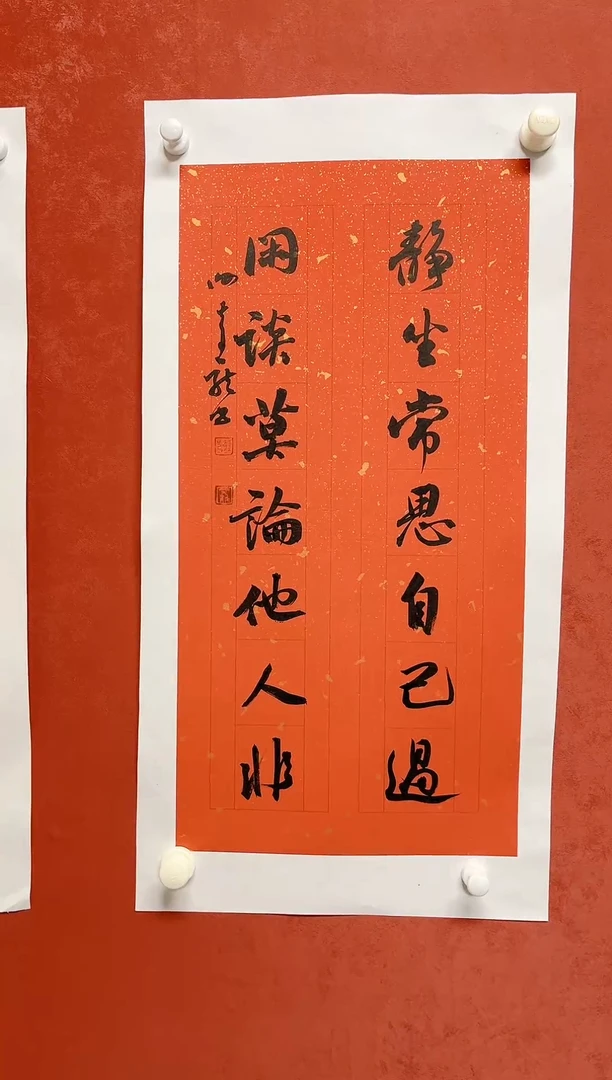 靜坐常思自己過
閑談莫論他人非